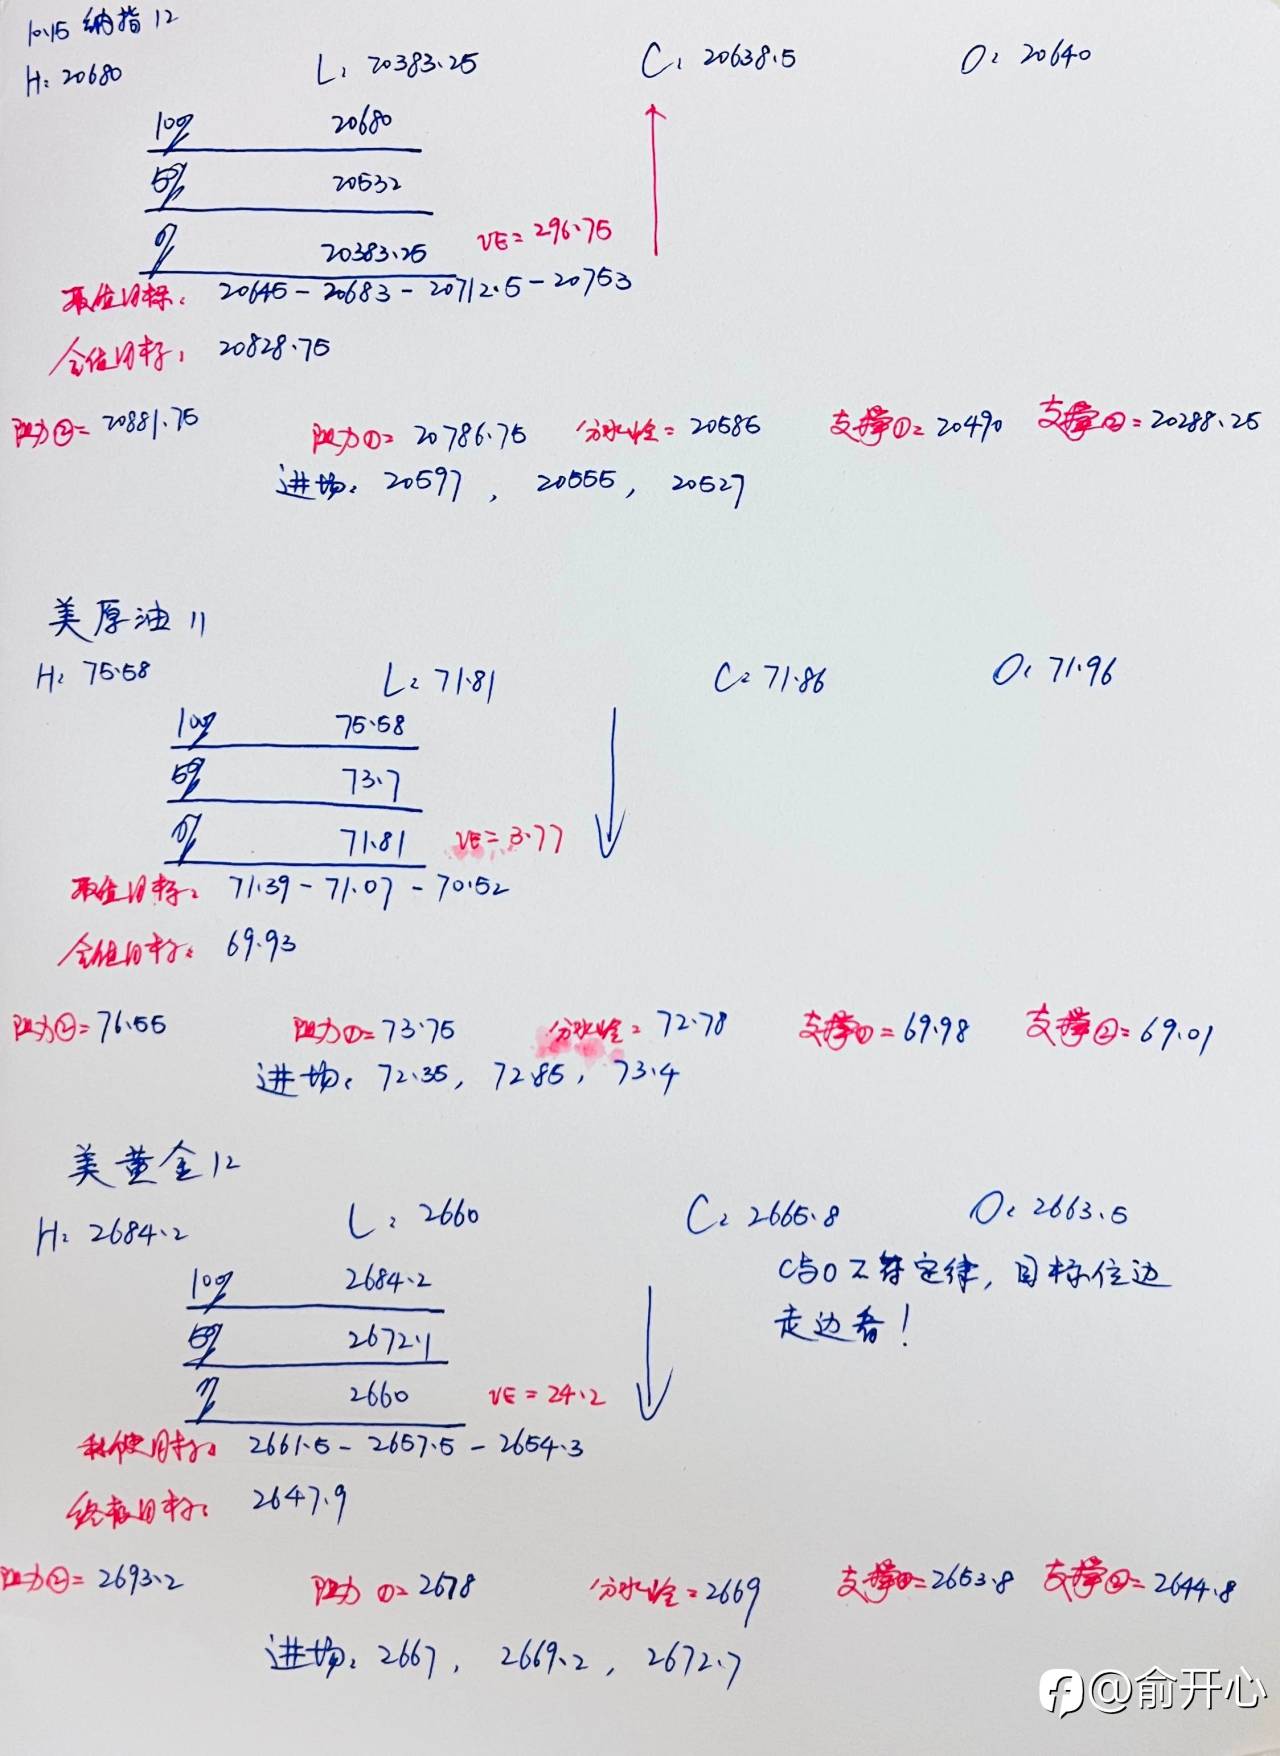 10.15 纳指12
H: 20680 L: 20383.25 C: 20638.5 O: 20640
100% 20680
50% 20532
0% 20383.25 VE=296.75
最值目标: 20645-20683-20712.5-20753
全值目标: 20828.75
阻力②=20881.75 阻力①=20786.75 分水岭=20585 支撑①=20490 支撑②=20288.25
进场: 20597, 20555, 20527
美原油11
H: 75.58 L: 71.81 C: 71.86 O: 71.96
100% 75.58
50% 73.7
0% 71.81 VE=3.77
最值目标: 71.39-71.07-70.52
全值目标: 69.93
阻力②=76.55 阻力①=73.75 分水岭=72.78 支撑①=69.98 支撑②=69.01
进场: 72.35, 72.85, 73.4
美黄金12
H: 2684.2 L: 2660 C: 2665.8 O: 2663.5
C与O不符定律,目标位边
走边看!
100% 2684.2
50% 2672.1
0% 2660 VE=24.2
目标: 2661.5-2657.5-2654.3
终极目标: 2647.9
阻力②=2693.2 阻力①=2678 分水岭=2669 支撑①=2653.8 支撑②=2644.8
进场: 2667, 2669.2, 2672.7
@俞开心